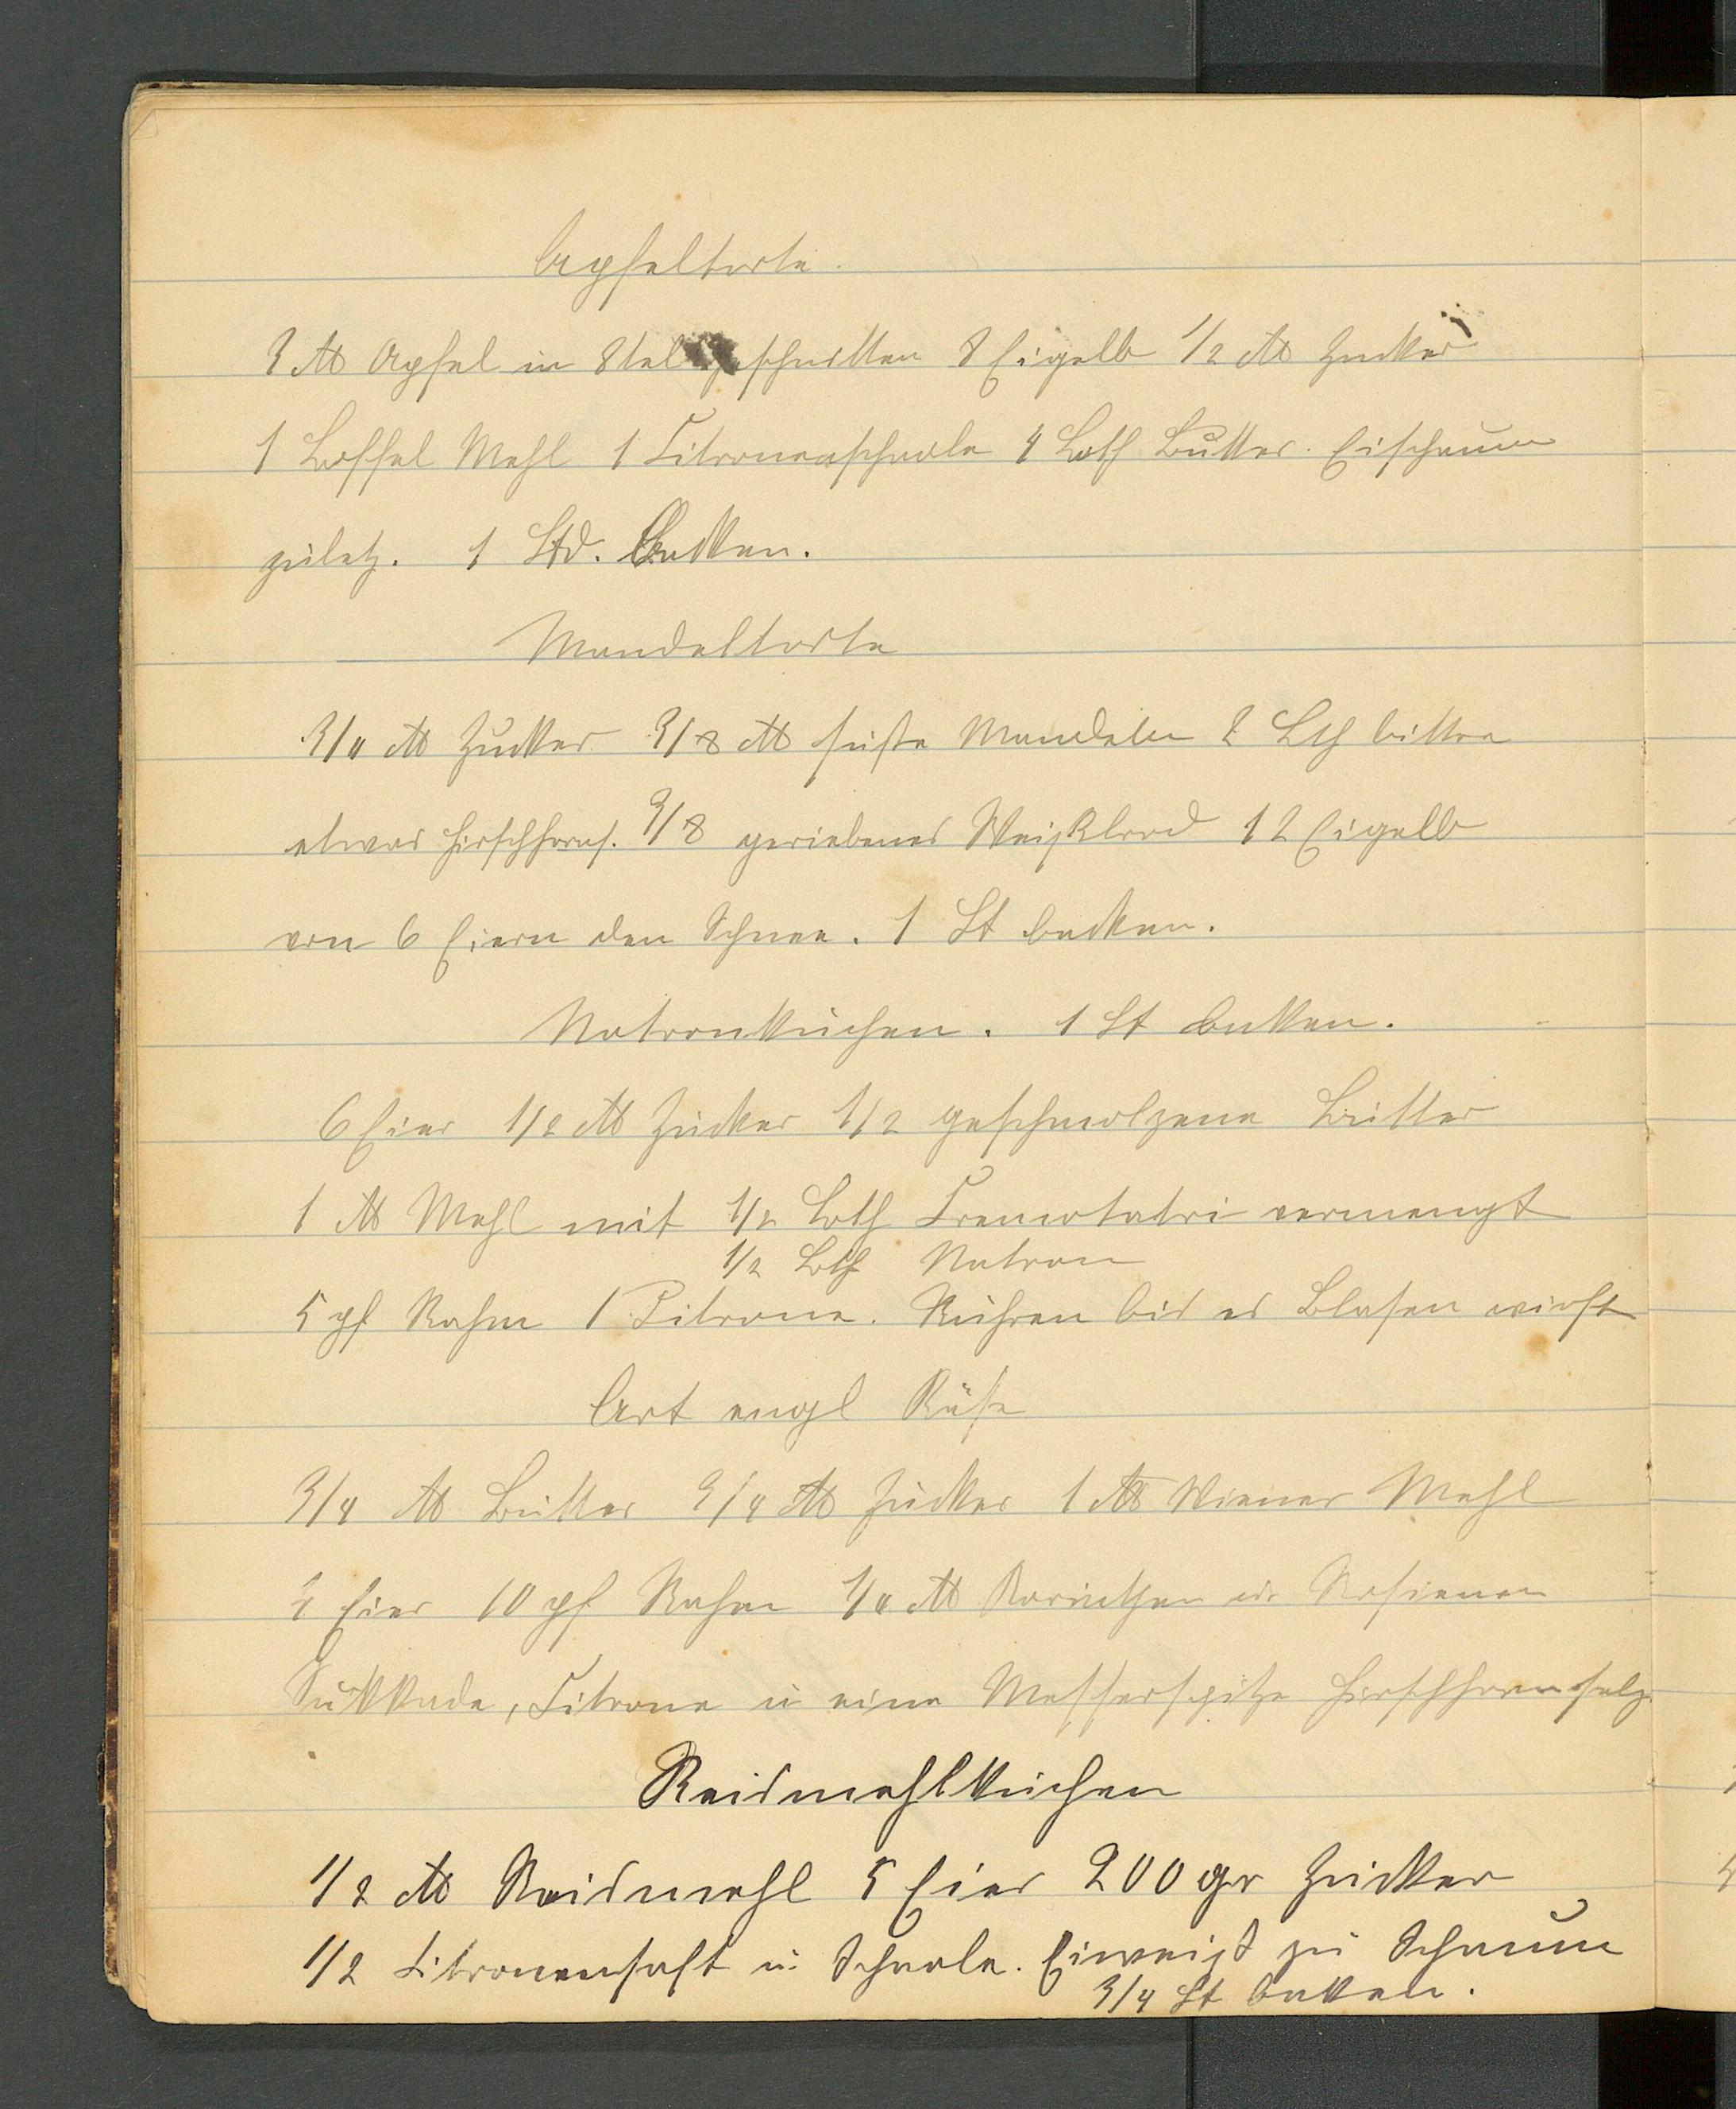 Apfeltorte.
3 ℔ Apfel in 8tel geschnitten 8 Eigelb 1/2 ℔ Zucker
1 Loffel Mehl 1 Citronenschaale 4 Loth Butter. Eischaum
zuletz. 1 Std. Backen.
Mandeltorte
3/4 ℔ Zucker 3/8 ℔ süße Mandeln 2 Lth bittre
etwas Hirschhorns. 3/8 geriebenes Weißbrod 12 Eigelb
von 6 Eiern den Schnee. 1 St backen.
Natronkuchen. 1 St backen.
6 Eier 1/2 ℔ Zucker 1/2 geschmolzene Butter
1 ℔ Mehl mit 1/2 Loth Cremotatri vermengt
1/2 Loth Natron
5 pf Rahm 1 Citrone. Rühren bis es Blasen wirft
Art engl Käse
3/4 ℔ Butter 3/4 ℔ Zucker 1 ℔ Wiener Mehl
2 Eier 10 pf Rahm 1/4 ℔ Korinthen Rosienen
Sukkade, Citrone u eine Messerspitze Hirschhornsalz.
Reismehlkuchen
1/2 ℔ Reismehl 5 Eier 200 gr Zucker
1/2 Citronensaft u. Schaale. Eiweißt zu Schaum
3/4 St backen.